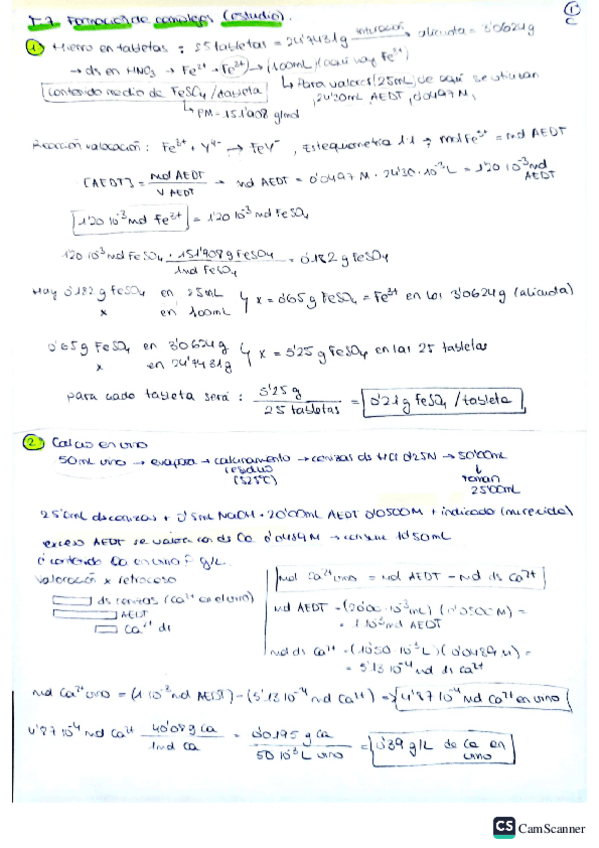 T-7 Formación de complejos (estudio).
1
C
1) Hierro en tabletas ; 25 tabletas = 24'7431g → alícuota = 3'0624g
→ ds en HNO3 → Fe2+ → Fe3+ → (100mL) (aquí hay Fe3+)
contenido medio de FeSO4 / tableta
↳ Para valorar (25mL) de aquí se utilizan
24'30mL AEDT, 0'0497 M,
↳ PM = 151'908 g/mol
Reacción valoración : Fe3+ + Y4- → FeY- , Estequiometría 1:1 ; mol Fe3+ = mol AEDT
[AEDT] = mol AEDT / V AEDT → mol AEDT = 0'0497 M · 24'30·10-3 L = 1'20 10-3 mol AEDT
1'20 10-3 mol Fe2+ = 1'20 10-3 mol FeSO4
1'20 10-3 mol FeSO4 · 151'908 g FeSO4 / 1 mol FeSO4 = 0'182 g FeSO4
Hay 0'182 g FeSO4 en 25mL
x en 100mL } x = 0'65 g FeSO4 = Fe3+ en los 3'0624g (alícuota)
0'65 g FeSO4 en 3'0624 g
x en 24'7431g } x = 5'25 g FeSO4 en las 25 tabletas
para cada tableta será : 5'25 g / 25 tabletas = 0'21 g FeSO4 / tableta
2) Calcio en vino
50mL vino → evapora → calcinamiento → cenizas ds HCl 0'25N → 50'00mL
residuo
(525ºC)
↓
toman
25'00mL
25'0mL ds cenizas + 0'5mL NaOH + 20'00mL AEDT 0'0500M + indicador (murexida)
exceso AEDT se valora con ds Ca 0'0489 M → consume 10'50mL
¿contenido Ca en vino? g/L
Valoración x retroceso
ds cenizas (Ca2+ en el vino)
AEDT
Ca2+ ds
mol Ca2+ vino = mol AEDT - mol ds Ca2+
mol AEDT = (20'00 · 10-3 mL) (0'0500 M) =
= 1 10-3 mol AEDT
mol ds Ca2+ = (10'50 10-3 L) (0'0489 M) =
= 5'13 10-4 mol ds Ca2+
mol Ca2+ vino = (1 10-3 mol AEDT) - (5'13 10-4 mol Ca2+) = 4'87 10-4 mol Ca2+ en vino
4'87 10-4 mol Ca2+ 40'08 g Ca / 1 mol Ca = 0'0195 g Ca / 50 10-3 L vino = 0'39 g/L de Ca en vino
CS CamScanner